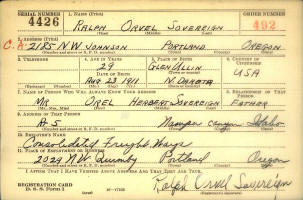 SERIAL NUMBER 1. NAME (Print) ORDER NUMBER
4426 RALPH ORVEL SOVEREIGN 492
(First) (Middle) (Last)
2. ADDRESS (Print)
2185 N.W. JOHNSON PORTLAND OREGON
3. TELEPHONE 4. AGE IN YEARS 5. PLACE OF BIRTH 6. COUNTRY OF CITIZENSHIP
29 GLEN ULLIN USA
DATE OF BIRTH
AUG 23 1911 N. DAKOTA
7. NAME OF PERSON WHO WILL ALWAYS KNOW YOUR ADDRESS 8. RELATIONSHIP OF THAT PERSON
MR OREL HERBERT SOVEREIGN FATHER
9. ADDRESS OF THAT PERSON
Nampa Canyon Idaho
10. EMPLOYER'S NAME
Consolidated Freight Ways
11. PLACE OF EMPLOYMENT OR BUSINESS
2029 N.W. Quimby Portland Oregon
I AFFIRM THAT I HAVE VERIFIED ABOVE ANSWERS AND THAT THEY ARE TRUE.
REGISTRATION CARD
D. S. S. Form 1 Ralph Orvel Sovereign